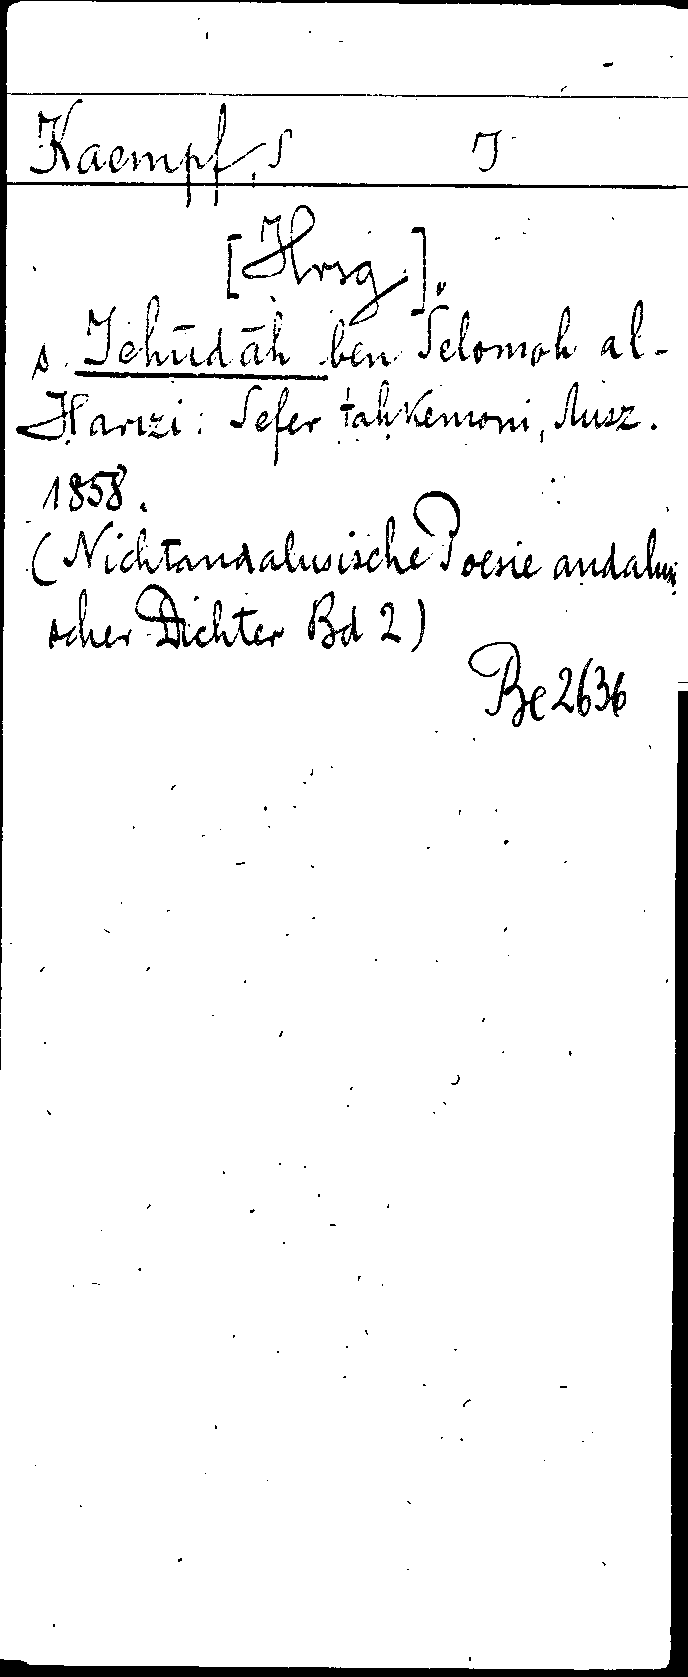 Kaempf, S J
[Hrsg.].
s. Jehūdāh ben Selomoh al-
Ḥarizi: Sefer taḥkemoni, Ausz.
1858.
(Nichtandalusische Poesie andalusi
scher Dichter Bd 2)
Be 2636